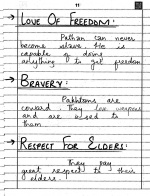 11
→ LOVE OF FREEDOM:
Pathan can never
become slave. He is
capable of doing
anything to get freedom
→ BRAVERY:
Pakhtoons are
coward. They love weapons
and are used to
them
→ RESPECT FOR ELDERS:
They pay
great respect to their
elders.